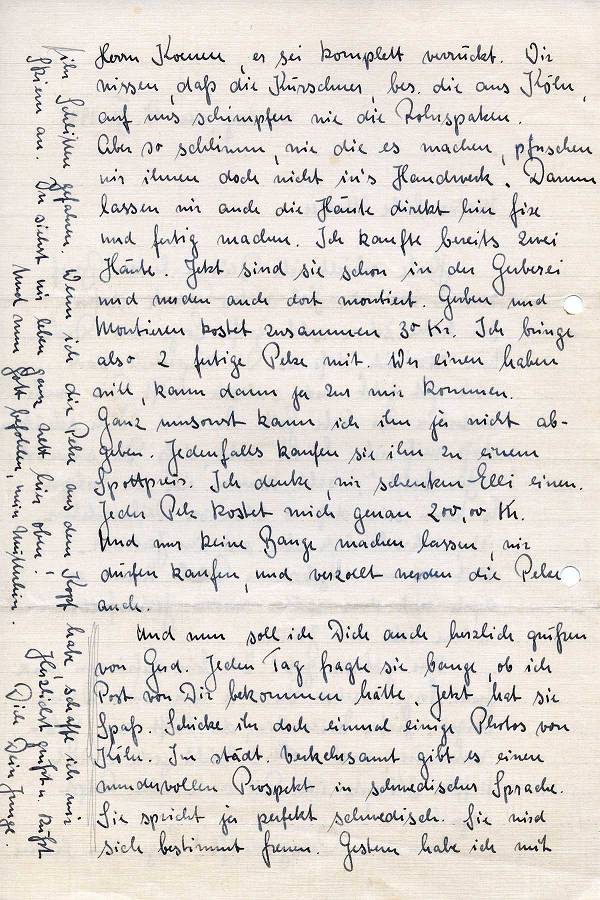 Herrn Koenen, er sei komplett verrückt. Wir
wissen, daß die Kürschner, bes. die aus Köln,
auf uns schimpfen wie die Rohrspatzen.
Aber so schlimm, wie die es machen, pfuschen
wir ihnen doch nicht in's Handwerk. Darum
lassen wir auch die Häute direkt hier fix
und fertig machen. Ich kaufte bereits zwei
Häute. Jetzt sind sie schon in der Gerberei
und werden auch dort montiert. Gerben und
Montieren kostet zusammen 30 Kr. Ich bringe
also 2 fertige Pelze mit. Wer einen haben
will, kann dann ja zu mir kommen.
Ganz umsonst kann ich ihn ja nicht ab-
geben. Jedenfalls kaufen sie ihn zu einem
Spottpreis. Ich denke, wir schenken Elli einen.
Jeder Pelz kostet mich genau 200,00 Kr.
Und nur keine Bange machen lassen, wir
dürfen kaufen, und verzollt werden die Pelze
auch.
Und nun soll ich Dich auch herzlich grüßen
von Gerd. Jeden Tag fragte sie bange, ob ich
Post von Dir bekommen hätte. Jetzt hat sie
Spaß. Schicke ihr doch einmal einige Photos von
Köln. Im städt. Verkehrsamt gibt es einen
wundervollen Prospekt in schwedischer Sprache.
Sie spricht ja perfekt schwedisch. Sie wird
sich bestimmt freuen. Gestern habe ich mit
ihr Schlitten gefahren. Wenn ich die Pelze aus dem Kopf habe, schaffe ich mir
Skiern an. Du siehst wir leben ganz nett hier oben!
Und nun Gott befohlen, mein Mütterlein.
Herzlichst grüßt u. küßt
Dich Dein Junge.